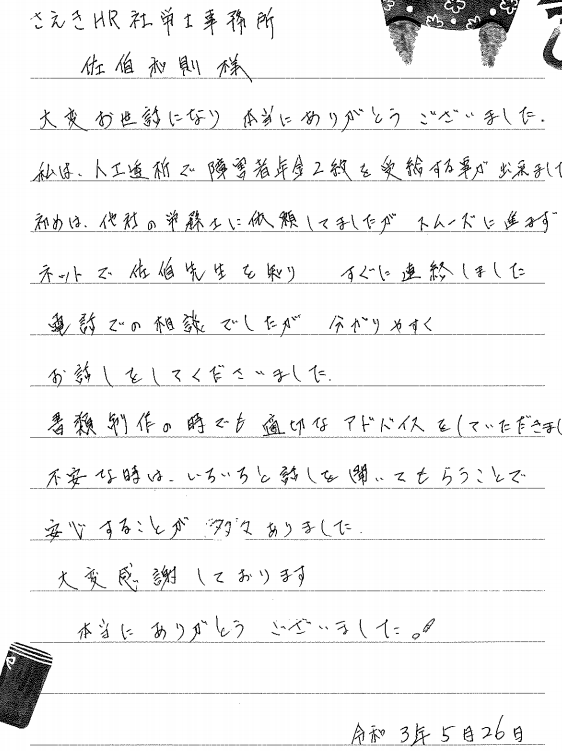 さえきHR社労士事務所
佐伯和則様
大変お世話になり 本当にありがとうございました.
私は、人工透析で障害者年金2級を受給する事が出来まし
初めは、他社の労務士に依頼してましたが スムーズに進まず
ネットで佐伯先生を知り すぐに連絡しました
電話での相談でしたが 分かりやすく
お話しをしてくださいました.
書類制作の時でも 適切なアドバイスをしていただきまし
不安な時は、いろいろと話しを聞いてもらうことで
安心することが多々ありました.
大変感謝しております
本当にありがとうございました。
令和3年5月26日